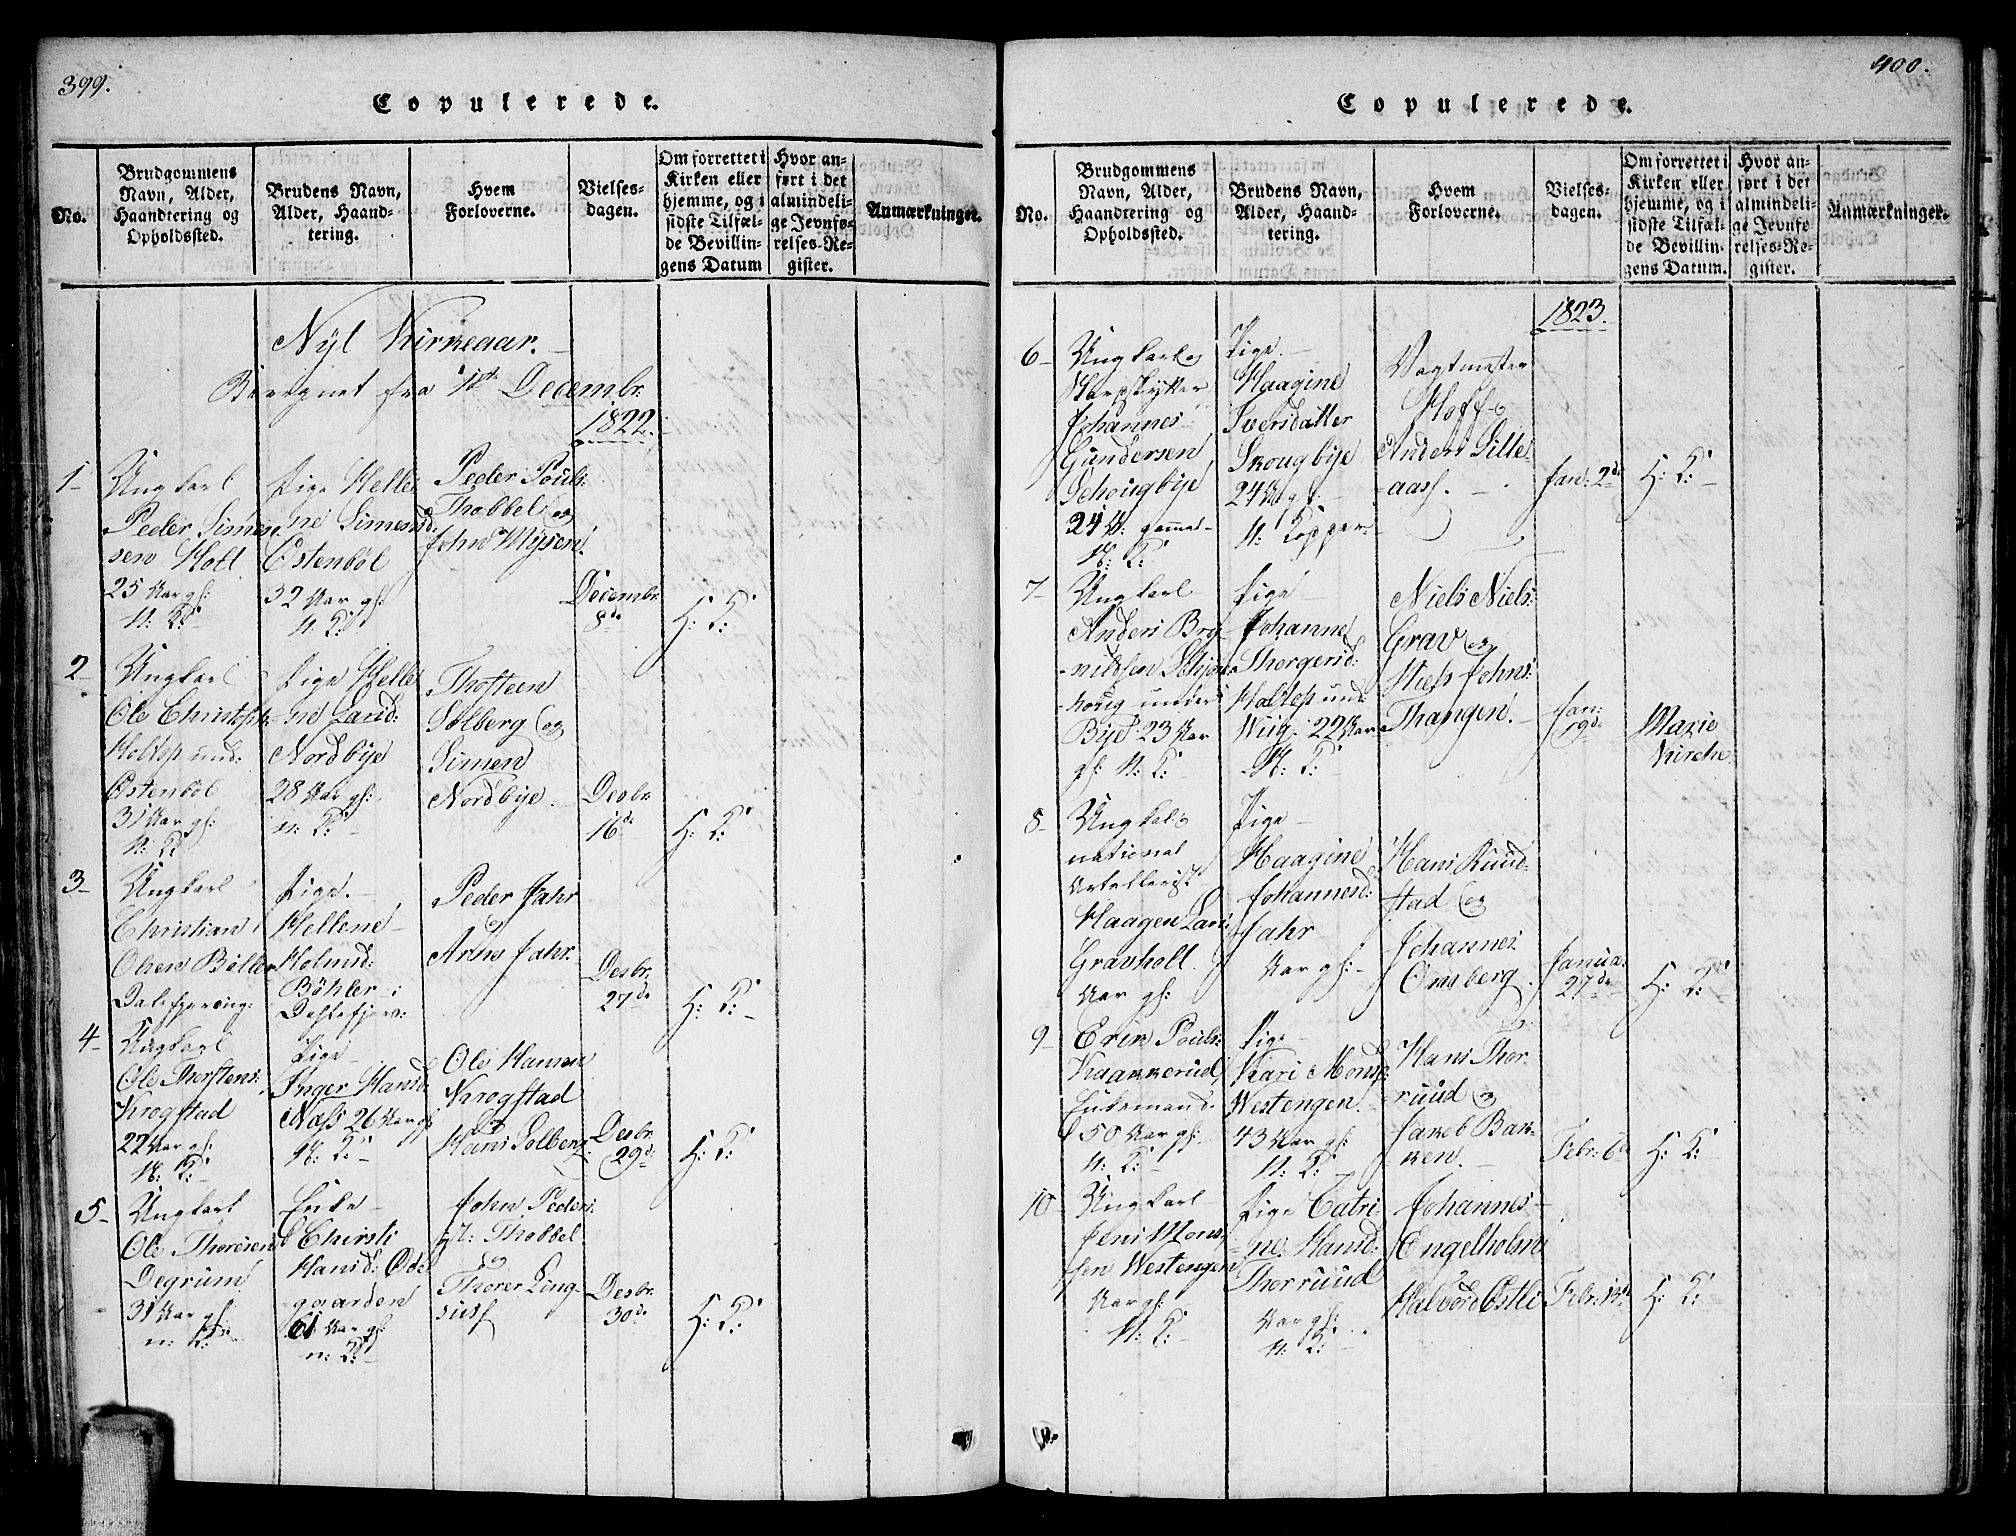 399.
Copulerede.
No.
Brudgommens
Navn, Alder,
Haandtering og
Opholdssted.
Brudens Navn,
Alder, Haand-
tering.
Hvem
Forloverne.
Vielses-
dagen.
Om forrettet i
Kirken eller
hjemme, og i
sidste Tilfæl-
de Bevillin-
gens Datum
Hvor an-
ført i det
almindeli-
ge Jevnfø-
relses-Re-
gister.
Anmærkninger.
Nyt Kirkeaar.
Beregnet fra 1ste Decembr:
1822.
1-
Ungkarl
Peder Simen-
sen Holt
25 Aar gl:
Pige Helle-
ne Simensd:
Østenbøl
32 Aar gl:
Peder Pouls:
Thobbel og
John Mysen
Decembr:
8de
H: K:
2-
Ungkarl
Ole Christoph:
Holtop und:
Østenbøl
31 Aar gl:
Pige Helle-
ne Larsd:
Nordbye
28 Aar gl:
Thosteen
Solberg og
Simen
Nordbye.
Desbr:
16de
H: K:
3-
Ungkarl
Christian
Olsen Bøller
Pige.
Hellene
Holmsd:
Bøhler
Peder Jahr
og
Arns Jahr.
Desbr:
27de
H: K:
4-
Ungkarl
Ole Thorstens:
Krogstad
22 Aar gl:
Pige
Inger Hansd:
Næss 26 Aar gl
Ole Hansen
Krogstad
og
Hans Solberg
Desbr:
29de
H: K:
5-
Ungkarl
Ole Thoresen
Degrum
31 Aar gl:
Enke
Chirsti
Hansd: Øde-
gaarden
61 Aar gl:
John Peders:
St: Thobbel
og
Thorer Ling-
sust
Desbr:
30de
H: K:
400.
Copulerede.
No.
Brudgommens
Navn, Alder,
Haandtering og
Opholdssted.
Brudens Navn,
Alder, Haand-
tering.
Hvem
Forloverne.
Vielses-
dagen.
Om forrettet i
Kirken eller
hjemme, og i
sidste Tilfæl-
de Bevillin-
gens Datum.
Hvor an-
ført i det
almindeli-
ge Jevnfø-
relses-Re-
gister.
Anmærkninger.
1823.
6-
Ungkarl og
Johannes
Gundersen
Schougbye
24 A: gammel
Pige
Haagine
Iversdatter
Skougbye
24 Aar gl:
Vagtmester
Hoff og
Anders Lille-
aass.
Jan: 2de
H: K:
7-
Ungkarl
Anders Bry-
nildsen
under
Bye 23 Aar
gl:
Pige
Johanne
Thorgersd:
Holtop und:
Wiig 22 Aar
Niels Niels:
Grav og
Niels Johns:
Thangen.
Jan:
19de
Marie
Kirche
8-
Ungkal og
national
Artellerist
Haagen Lars:
Gravholt.
Aar gl:
Pige
Haagine
Johannesd:
Jahr
Aar gl:
Hans Ruud-
stad og
Johannes
Omsberg.
Janua:
27de
H: K:
9-
Erik Pouls:
Kaakkerud,
Enkemand
50 Aar gl:
Pige
Kari Monsd:
Westengen.
43 Aar gl:
Hans Thor-
ruud og
Jakob Bak-
ken.
Febr: 6te
H: K:
10
Ungkarl
Jens Mons-
sen Westengen
Aar gl:
Pige Catri-
ne Hansd:
Thorruud
Aar gl:
Johannes
Engelholm
og
Halvord Østli
Febr: 13de
H: K: